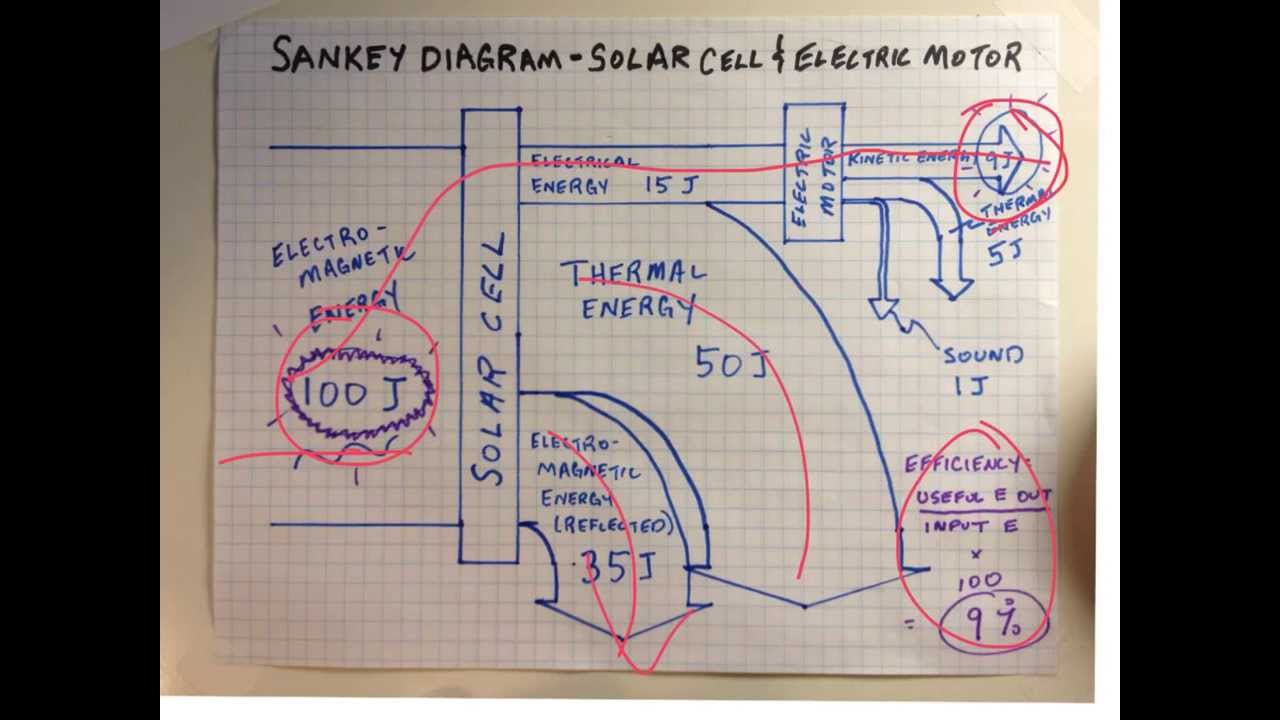 SANKEY DIAGRAM - SOLAR CELL & ELECTRIC MOTOR
ELECTRO-
MAGNETIC
ENERGY
100 J
SOLAR CELL
ELECTRICAL
ENERGY 15 J
ELECTRIC
MOTOR
KINETIC ENERGY 9J
THERMAL
ENERGY
5J
SOUND
1J
THERMAL
ENERGY
50J
ELECTRO-
MAGNETIC
ENERGY
(REFLECTED)
35J
EFFICIENCY=
USEFUL E OUT
INPUT E
×
100
= 9%